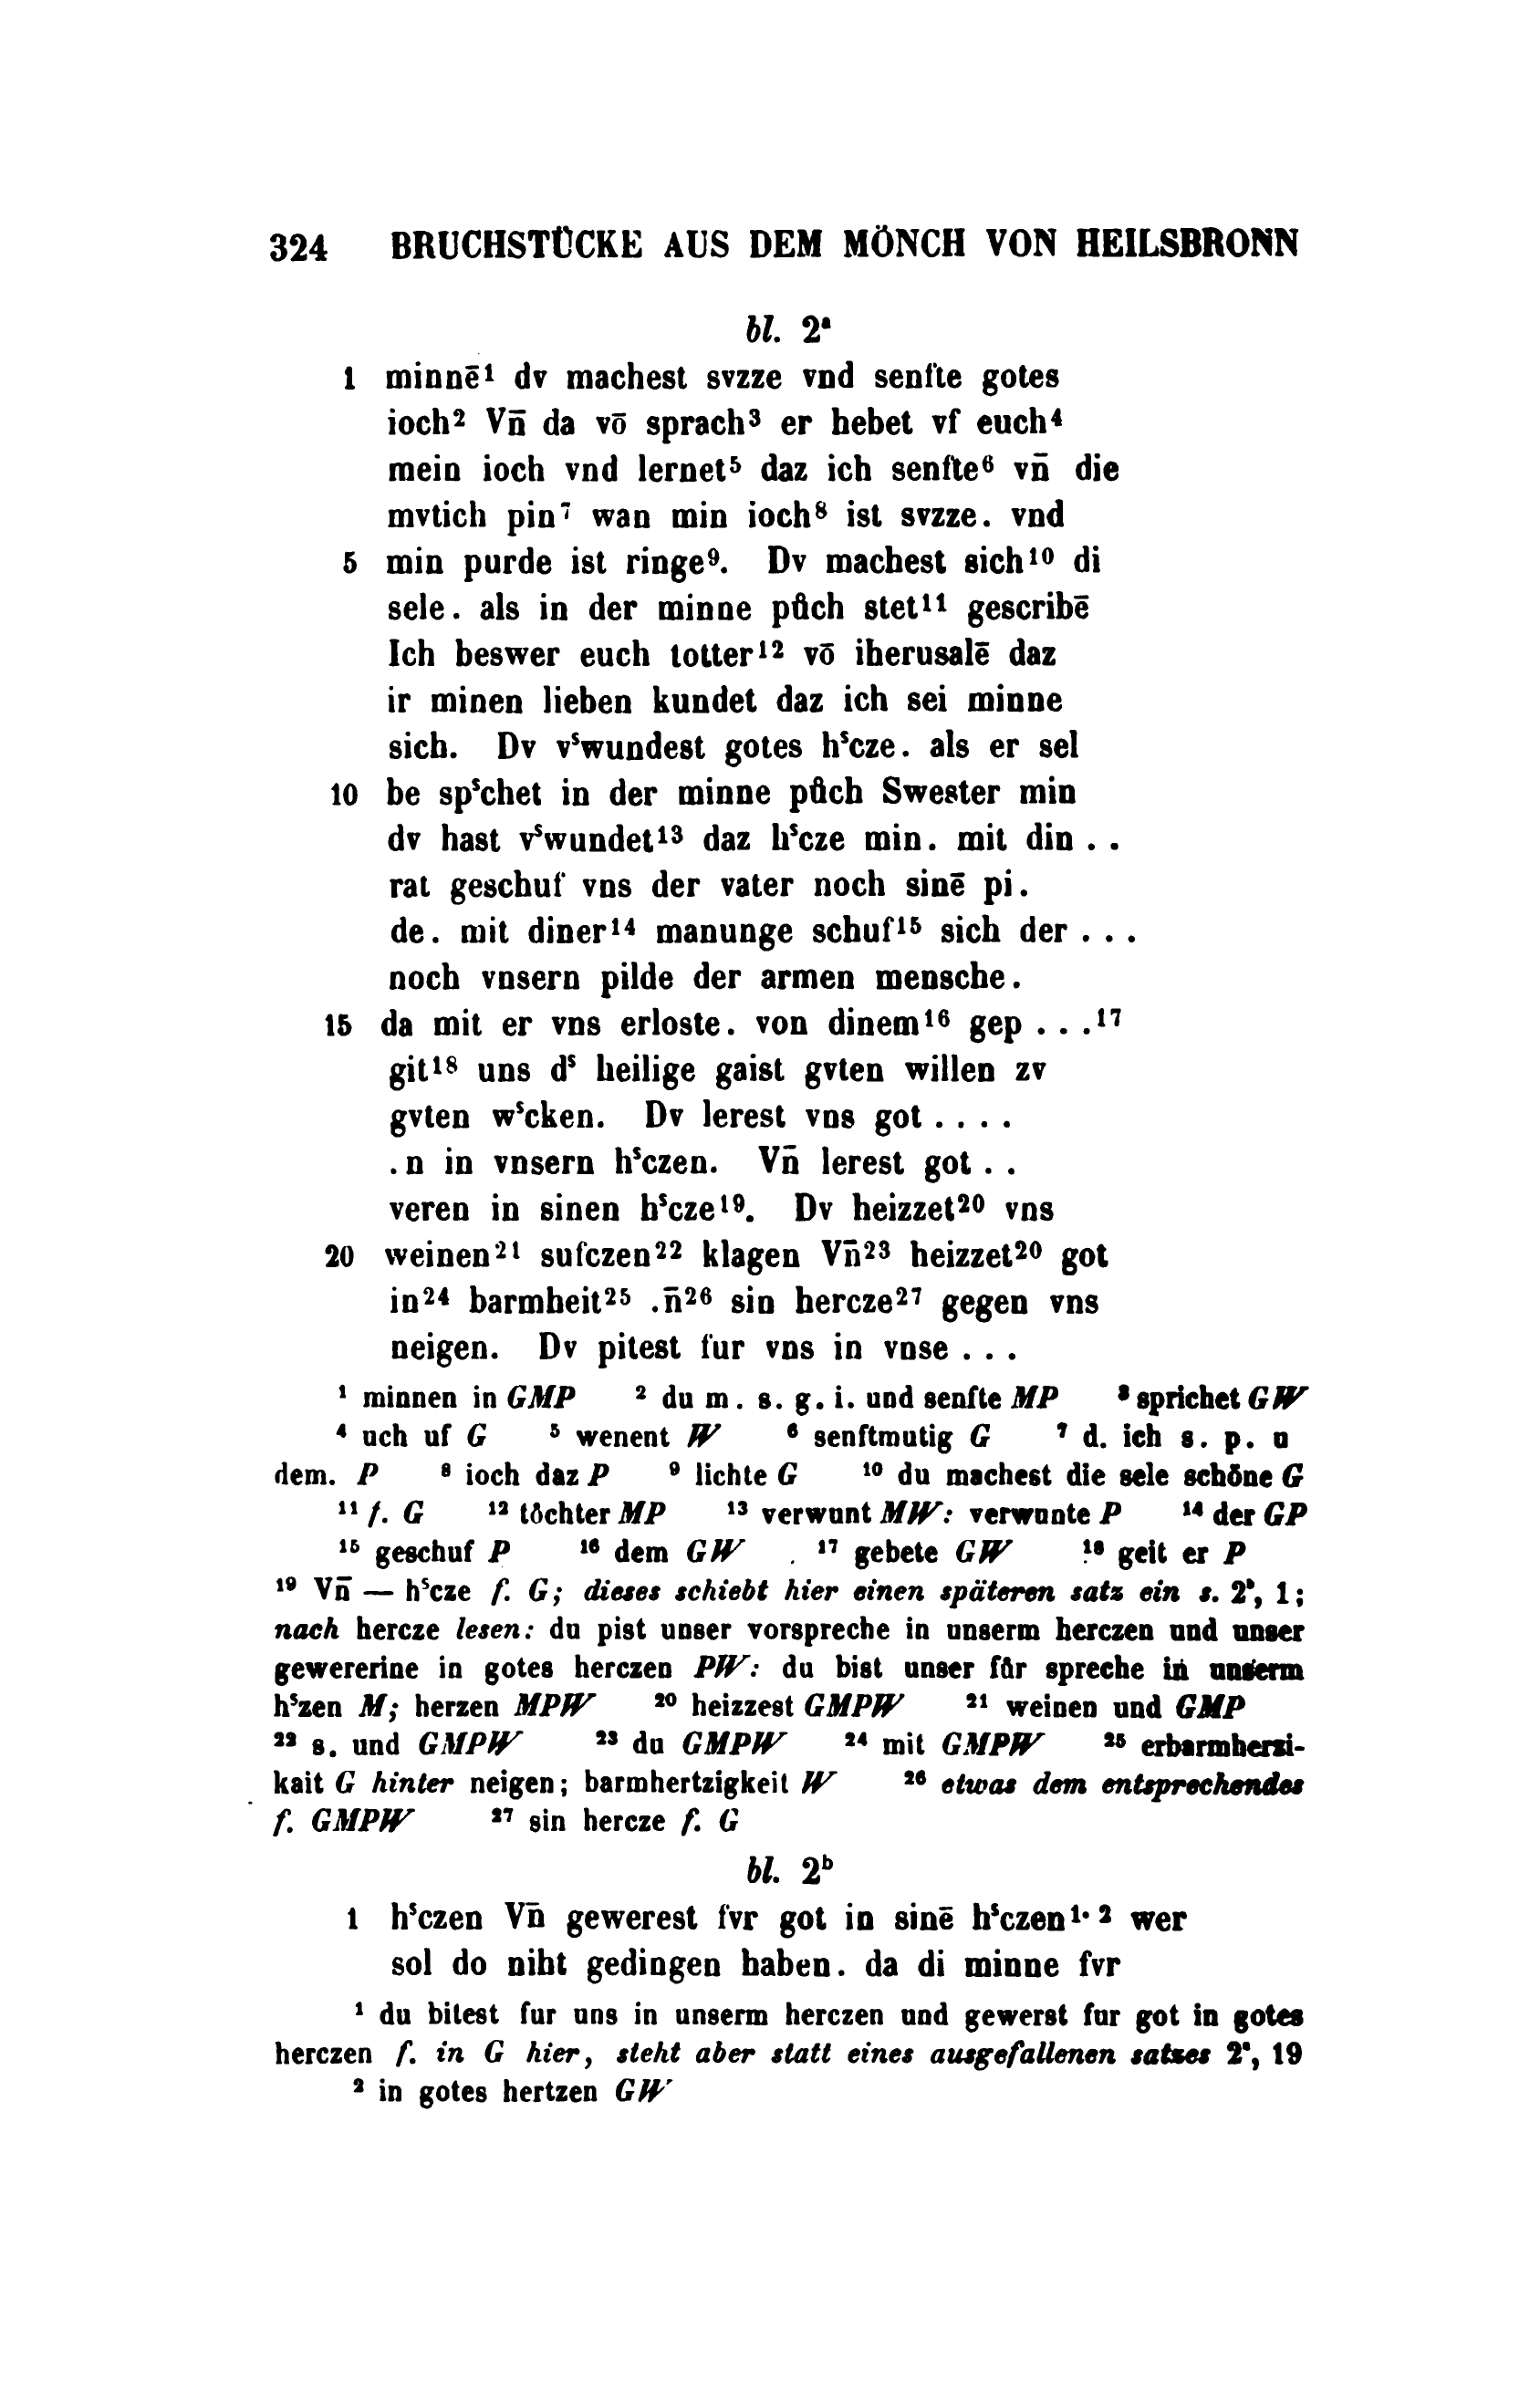 324 BRUCHSTÜCKE AUS DEM MÖNCH VON HEILSBRONN
bl. 2ᵃ
1 minnē¹ dv machest svzze vnd senfte gotes
ioch² Vn̄ da vō sprach³ er hebet vf euch⁴
mein ioch vnd lernet⁵ daz ich senfte⁶ vn̄ die
mvtich pin⁷ wan min ioch⁸ ist svzze. vnd
5 min purde ist ringe⁹. Dv machest sich¹⁰ di
sele. als in der minne pu̇ch stet¹¹ gescribē
Ich beswer euch totter¹² vō iherusalē daz
ir minen lieben kundet daz ich sei minne
sich. Dv vˢwundest gotes hˢcze. als er sel
10 be spˢchet in der minne pu̇ch Swester min
dv hast vˢwundet¹³ daz hˢcze min. mit din . .
rat geschuf vns der vater noch sinē pi.
de. mit diner¹⁴ manunge schuf¹⁵ sich der . . .
noch vnsern pilde der armen mensche.
15 da mit er vns erloste. von dinem¹⁶ gep . . .¹⁷
git¹⁸ uns dˢ heilige gaist gvten willen zv
gvten wˢcken. Dv lerest vns got . . . .
.n in vnsern hˢczen. Vn̄ lerest got . .
veren in sinen hˢcze¹⁹. Dv heizzet²⁰ vns
20 weinen²¹ sufczen²² klagen Vn̄²³ heizzet²⁰ got
in²⁴ barmheit²⁵ .n̄²⁶ sin hercze²⁷ gegen vns
neigen. Dv pitest fur vns in vnse . . .
¹ minnen in GMP ² du m. s. g. i. und senfte MP ³ sprichet GW
⁴ uch uf G ⁵ wenent W ⁶ senftmutig G ⁷ d. ich s. p. u
dem. P ⁸ ioch daz P ⁹ lichte G ¹⁰ du machest die sele schöne G
¹¹ f. G ¹² töchter MP ¹³ verwunt MW: verwunte P ¹⁴ der GP
¹⁵ geschuf P ¹⁶ dem GW ¹⁷ gebete GW ¹⁸ geit er P
¹⁹ Vn̄ — hˢcze f. G; dieses schiebt hier einen späteren satz ein s. 2ᵇ, 1;
nach hercze lesen: du pist unser vorspreche in unserm herczen und unser
gewererine in gotes herczen PW: du bist unser fůr spreche in unserm
hˢzen M; herzen MPW ²⁰ heizzest GMPW ²¹ weinen und GMP
²² s. und GMPW ²³ du GMPW ²⁴ mit GMPW ²⁵ erbarmherzi-
kait G hinter neigen; barmhertzigkeit W ²⁶ etwas dem entsprechendes
f. GMPW ²⁷ sin hercze f. G
bl. 2ᵇ
1 hˢczen Vn̄ gewerest fvr got in sinē hˢczen¹·² wer
sol do niht gedingen haben. da di minne fvr
¹ du bitest fur uns in unserm herczen und gewerst fur got in gotes
herczen f. in G hier, steht aber statt eines ausgefallenen satzes 2ᵃ, 19
² in gotes hertzen GW